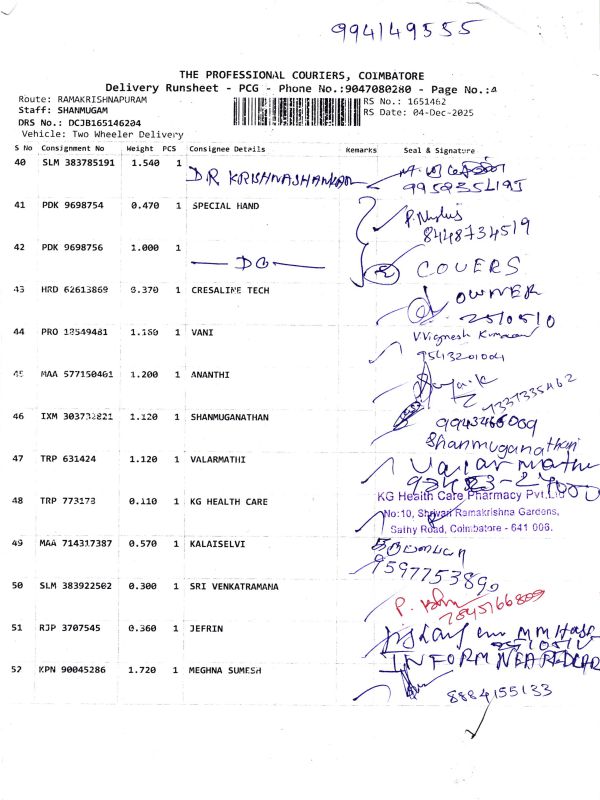 9941149555
THE PROFESSIONAL COURIERS, COIMBATORE
Delivery Runsheet - PCG - Phone No.:9047080280 - Page No.:4
Route: RAMAKRISHNAPURAM
Staff: SHANMUGAM
DRS No.: DCJB165146204
Vehicle: Two Wheeler Delivery
RS No.: 1651462
RS Date: 04-Dec-2025
S No Consignment No Weight PCS Consignee Details Remarks Seal & Signature
40 SLM 383785191 1.540 1 DR KRISHNASHANKAR
41 PDK 9698754 0.470 1 SPECIAL HAND
8448734519
42 PDK 9698756 1.000 1 — DO — COVERS
43 HRD 62613869 0.370 1 CRESALINE TECH OWNER
2510510
44 PRO 18549481 1.160 1 VANI VVignesh Kumaran
9543201004
45 MAA 577150461 1.200 1 ANANTHI
46 IXM 303732821 1.120 1 SHANMUGANATHAN 9943466009
Shanmuganathan
47 TRP 631424 1.120 1 VALARMATHI Valarmathi
48 TRP 773173 0.110 1 KG HEALTH CARE KG Health Care Pharmacy Pvt.Ltd
No:10, Shrivari Ramakrishna Gardens,
Sathy Road, Coimbatore - 641 006.
49 MAA 714317387 0.570 1 KALAISELVI
9597753890
50 SLM 383922502 0.300 1 SRI VENKATRAMANA
7845166809
51 RJP 3707545 0.360 1 JEFRIN
INFORM
52 KPN 90045286 1.720 1 MEGHNA SUMESH
8884155133